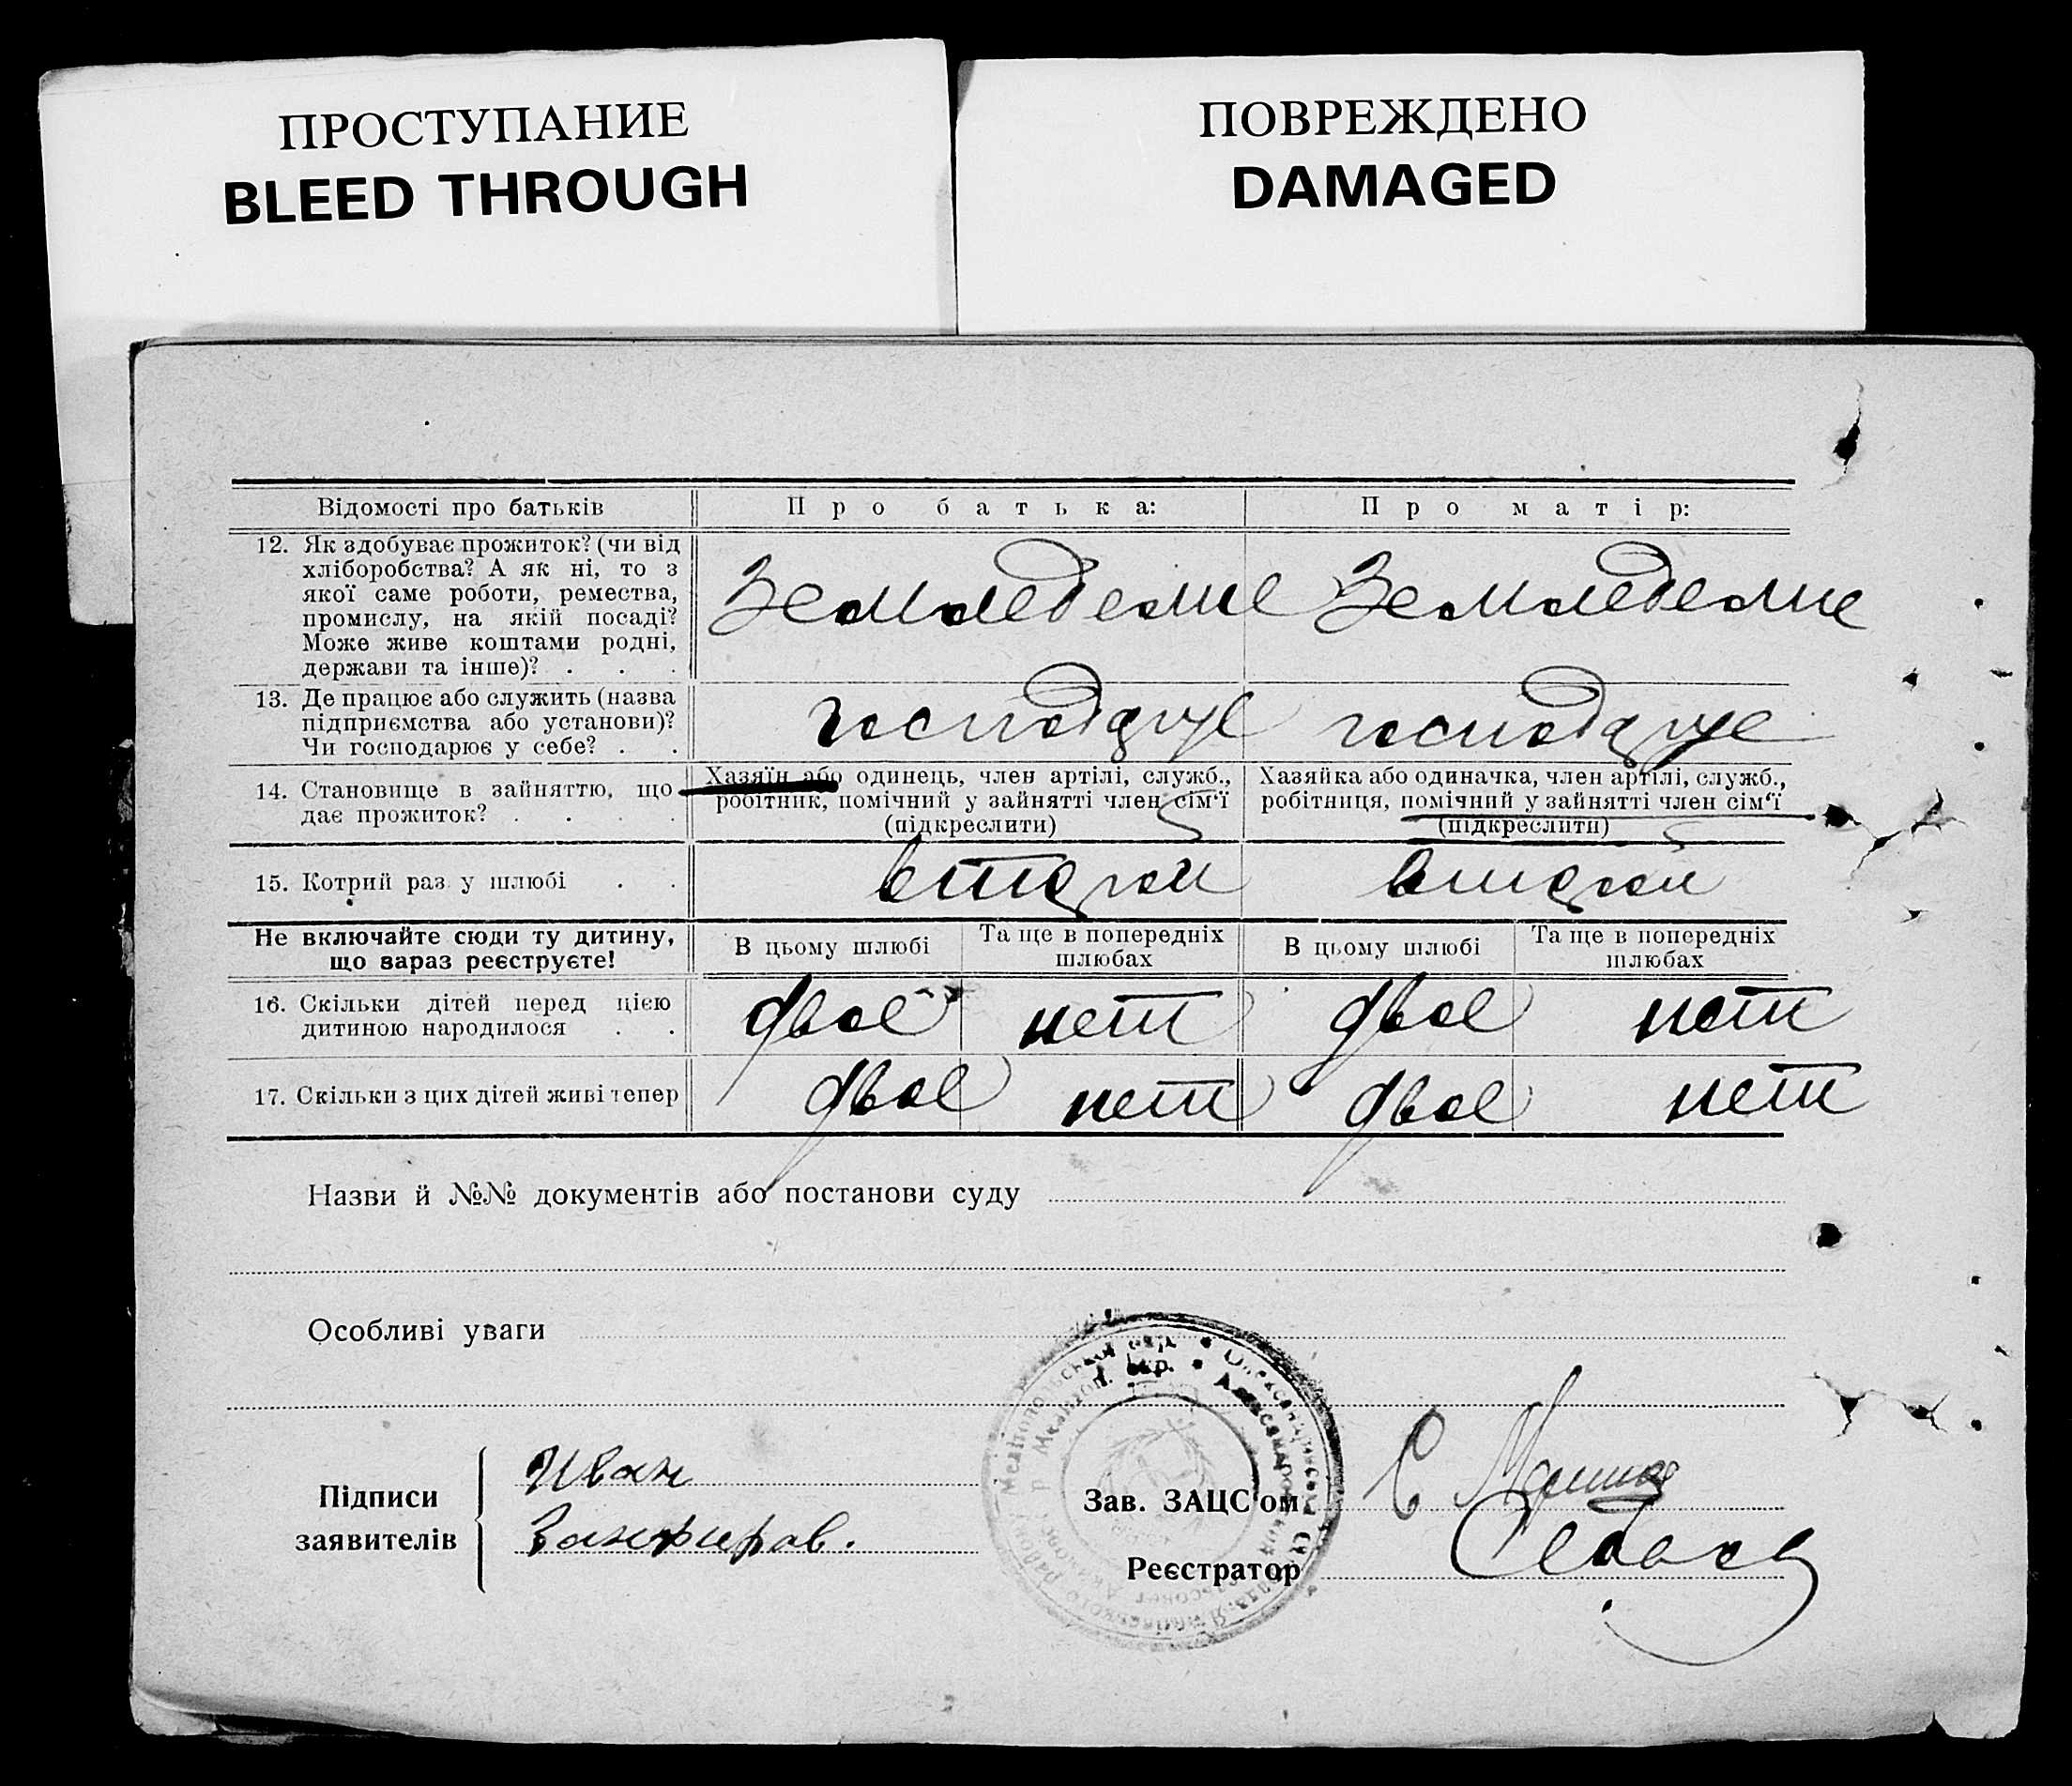 ПРОСТУПАНИЕ
BLEED THROUGH
ПОВРЕЖДЕНО
DAMAGED
Відомості про батьків
Про батька:
Про матір:
12. Як здобуває прожиток? (чи від
хліборобства? А як ні, то з
якої саме роботи, ремества,
промислу, на якій посаді?
Може живе коштами родні,
держави та інше)? . . .
Земледелие
Земледелие
13. Де працює або служить (назва
підприємства або установи)?
Чи господарює у себе? . .
господарує
господарує
14. Становище в зайняттю, що
дає прожиток? . . . .
Хазяїн або одинець, член артілі, служб.,
робітник, помічний у зайнятті член сім'ї
(підкреслити)
Хазяйка або одиначка, член артілі, служб.,
робітниця, помічний у зайнятті член сім'ї
(підкреслити)
15. Котрий раз у шлюбі . .
второй
второй
Не включайте сюди ту дитину,
що зараз реєструєте!
В цьому шлюбі
Та ще в попередніх
шлюбах
В цьому шлюбі
Та ще в попередніх
шлюбах
16. Скільки дітей перед цією
дитиною народилося . .
двое
нет
двое
нет
17. Скільки з цих дітей живі тепер
двое
нет
двое
нет
Назви й №№ документів або постанови суду
Особливі уваги
Підписи
заявителів
Иван
Занфиров.
Зав. ЗАЦС'ом
Реєстратор